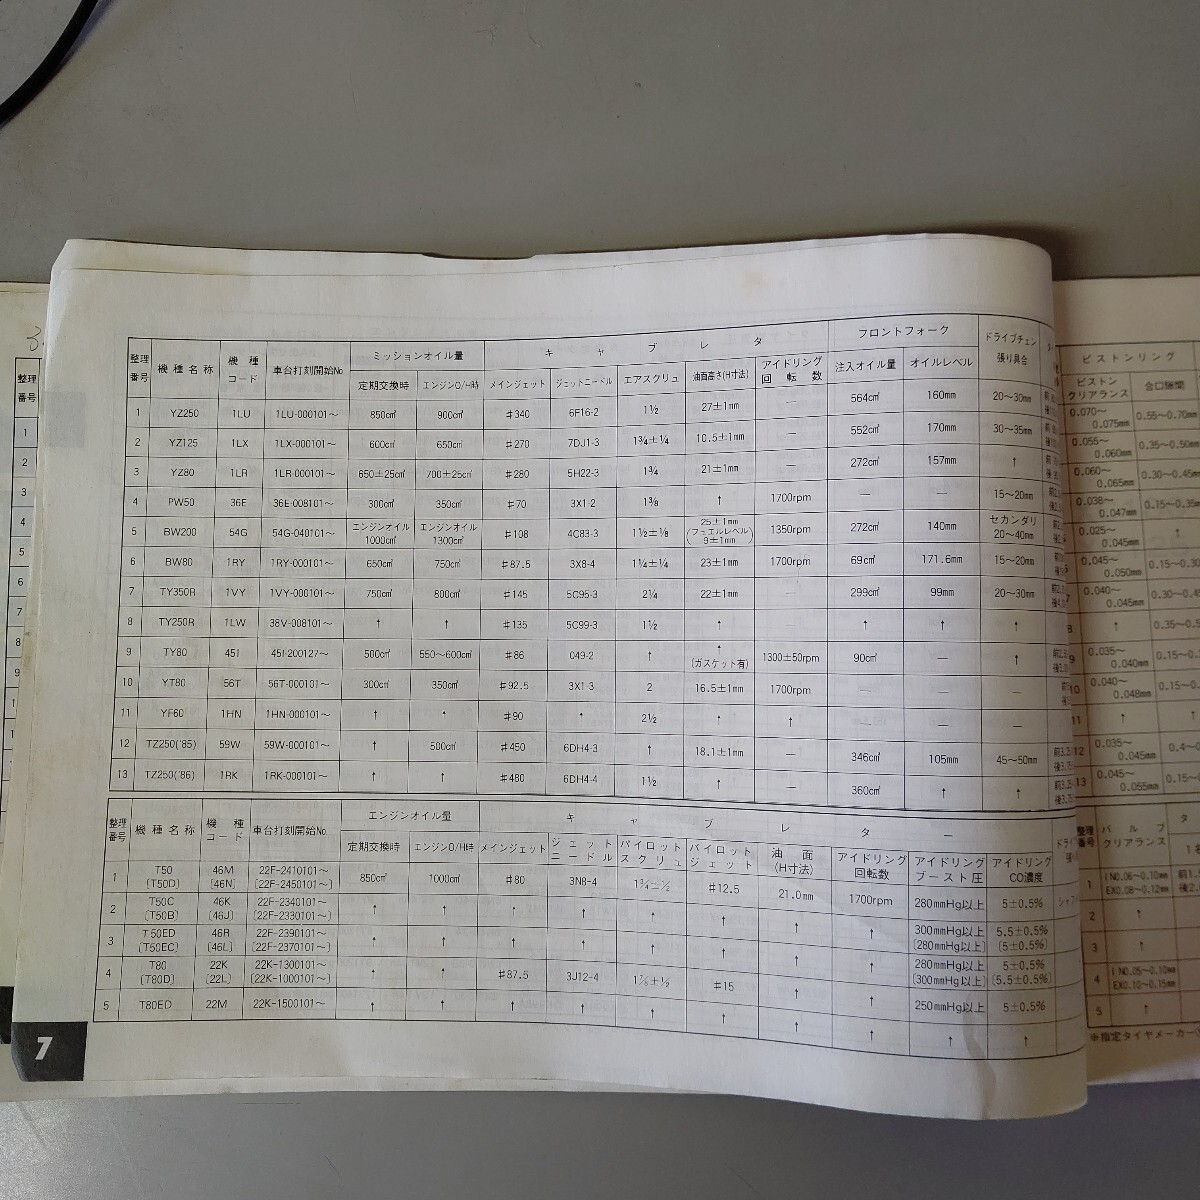 整理番号 機種名称 機種コード 車台打刻開始No ミッションオイル量 キャブレタ フロントフォーク ドライブチェン張り具合
定期交換時 エンジンO/H時 メインジェット ジェットニードル エアスクリュ 油面高さ(H寸法) アイドリング回転数 注入オイル量 オイルレベル
1 YZ250 1LU 1LU-000101〜 850㎤ 900㎤ ♯340 6F16-2 1½ 27±1mm — 564㎤ 160mm 20〜30mm
2 YZ125 1LX 1LX-000101〜 600㎤ 650㎤ ♯270 7DJ1-3 1¾±¼ 10.5±1mm — 552㎤ 170mm 30〜35mm
3 YZ80 1LR 1LR-000101〜 650±25㎤ 700±25㎤ ♯280 5H22-3 1¾ 21±1mm — 272㎤ 157mm ↑
4 PW50 36E 36E-008101〜 300㎤ 350㎤ ♯70 3X1-2 1⅜ ↑ 1700rpm — — 15〜20mm
5 BW200 54G 54G-040101〜 エンジンオイル1000㎤ エンジンオイル1300㎤ ♯108 4C83-3 1½±⅛ 25±1mm(フュエルレベル9±1mm) 1350rpm 272㎤ 140mm セカンダリ20〜40mm
6 BW80 1RY 1RY-000101〜 650㎤ 750㎤ ♯87.5 3X8-4 1¼±¼ 23±1mm 1700rpm 69㎤ 171.6mm 15〜20mm
7 TY350R 1VY 1VY-000101〜 750㎤ 800㎤ ♯145 5C95-3 2¼ 22±1mm — 299㎤ 99mm 20〜30mm
8 TY250R 1LW 38V-008101〜 ↑ ↑ ♯135 5C99-3 1½ ↑ — ↑ ↑ ↑
9 TY80 451 451-200127〜 500㎤ 550〜600㎤ ♯86 049-2 ↑ ↑(ガスケット有) 1300±50rpm 90㎤ — ↑
10 YT80 56T 56T-000101〜 300㎤ 350㎤ ♯92.5 3X1-3 2 16.5±1mm 1700rpm — — —
11 YF60 1HN 1HN-000101〜 ↑ ↑ ♯90 ↑ 2½ ↑ ↑ — — —
12 TZ250('85) 59W 59W-000101〜 ↑ 500㎤ ♯450 6DH4-3 ↑ 18.1±1mm — 346㎤ 105mm 45〜50mm
13 TZ250('86) 1RK 1RK-000101〜 ↑ ↑ ♯480 6DH4-4 1½ ↑ — 360㎤ ↑ ↑
整理番号 機種名称 機種コード 車台打刻開始No エンジンオイル量 キャブレター
定期交換時 エンジンO/H時 メインジェット ジェットニードル パイロットスクリュ パイロットジェット 油面(H寸法) アイドリング回転数 アイドリングブースト圧 アイドリングCO濃度
1 T50(T50D) 46M(46N) 22F-2410101〜(22F-2450101〜) 850㎤ 1000㎤ ♯80 3N8-4 1¾±½ ♯12.5 21.0mm 1700rpm 280mmHg以上 5±0.5%
2 T50C(T50B) 46K(46J) 22F-2340101〜(22F-2330101〜) ↑ ↑ ↑ ↑ ↑ ↑ ↑ ↑ 300mmHg以上(280mmHg以上) 5.5±0.5%(5±0.5%)
3 T50ED(T50EC) 46R(46L) 22F-2390101〜(22F-2370101〜) ↑ ↑ ↑ ↑ ↑ ↑ ↑ ↑ 280mmHg以上(300mmHg以上) 5±0.5%(5.5±0.5%)
4 T80(T80D) 22K(22L) 22K-1300101〜(22K-1000101〜) ↑ ↑ ♯87.5 3J12-4 1⅞±½ ♯15 ↑ ↑ 250mmHg以上 5±0.5%
5 T80ED 22M 22K-1500101〜 ↑ ↑ ↑ ↑ ↑ ↑ ↑ ↑ ↑ ↑
7
ピストンリング
ピストンクリアランス 合口隙間
0.070〜0.075mm 0.55〜0.70mm
0.055〜0.060mm 0.35〜0.50mm
0.060〜0.065mm 0.30〜0.45mm
0.038〜0.047mm
0.025〜0.045mm ↑
0.045〜0.050mm
0.040〜0.045mm
↑
0.035〜0.040mm
0.040〜0.048mm
↑ ↑
0.035〜0.045mm
0.045〜0.055mm
整理番号 バルブクリアランス
1 IN0.06〜0.10mm EX0.08〜0.12mm
2 ↑
3 ↑
4 IN0.05〜0.10mm EX0.10〜0.15mm
5 ↑
※指定タイヤメーカー
整理番号
1
2
3
4
5
6
7
8
9